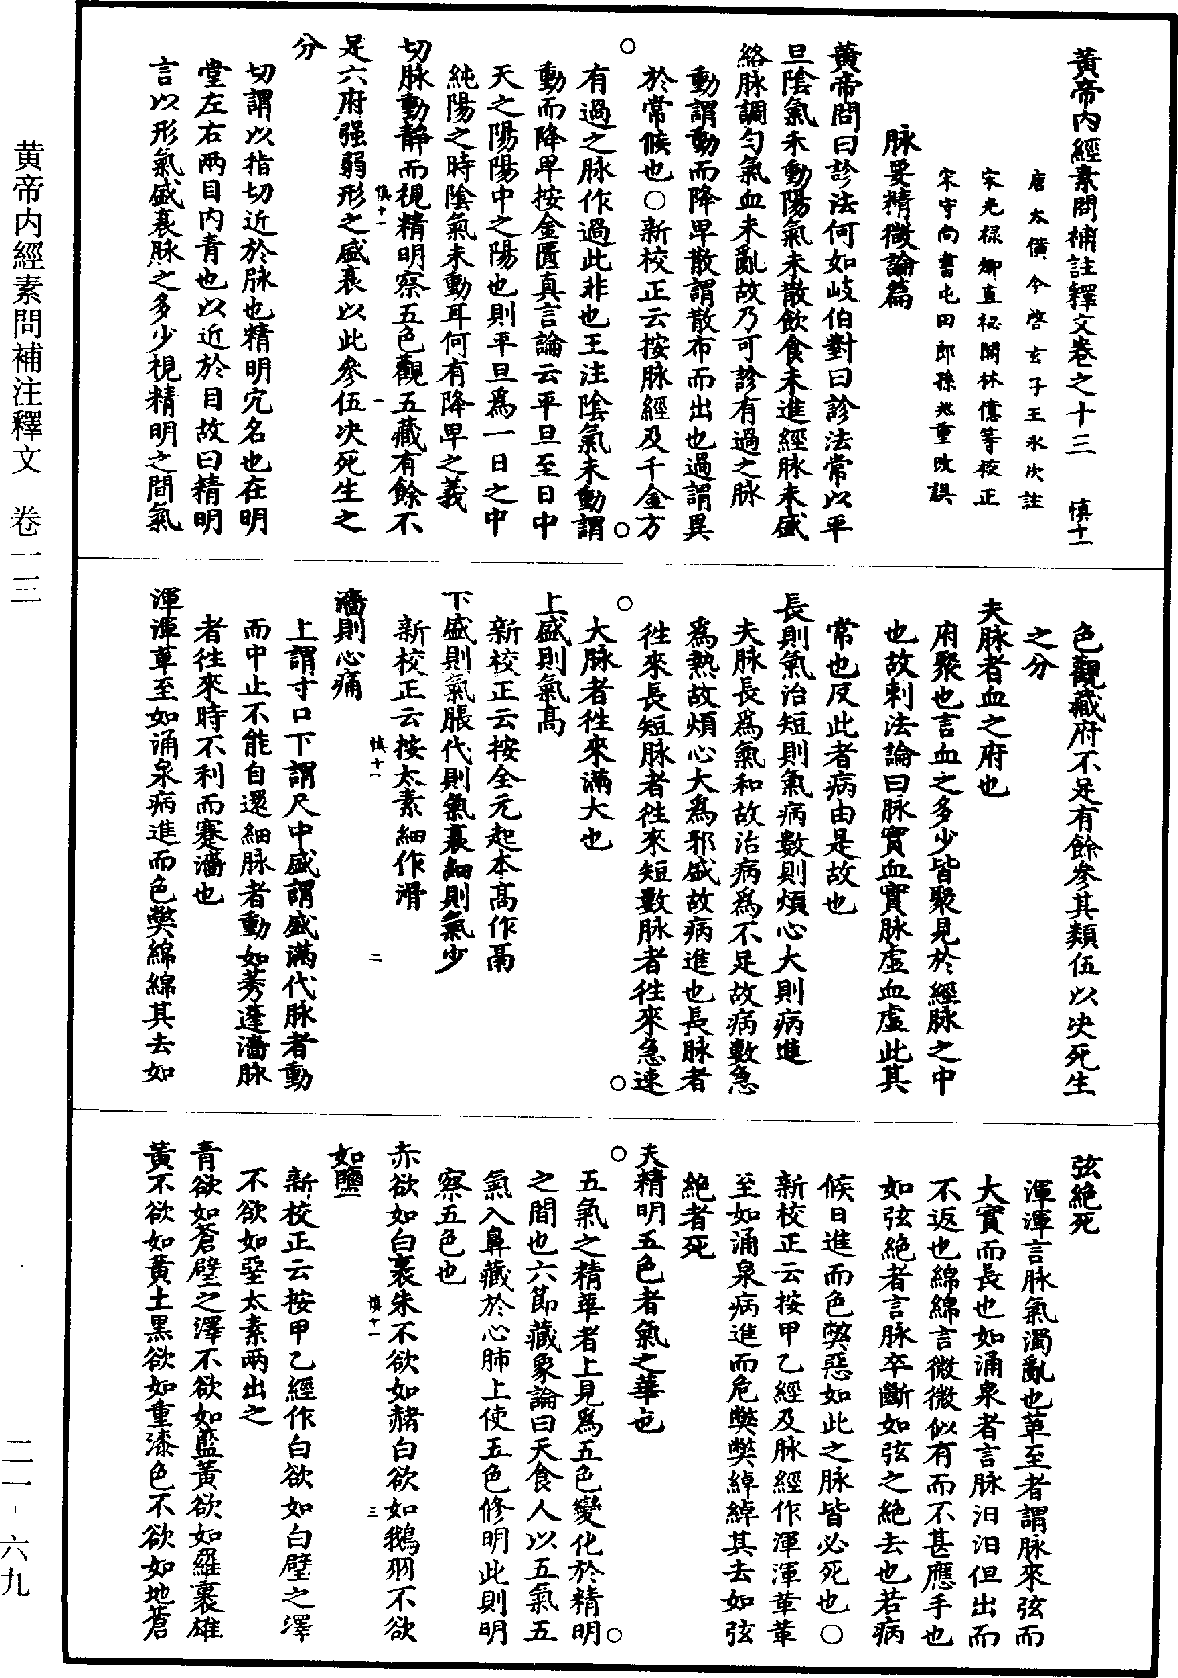 黃帝內經素問補註釋文卷之十三　慎十一
唐太僕令啓玄子王氷次註
宋光祿卿直秘閣林億等校正
宋守尚書屯田郎孫兆重改誤
脉要精微論篇
黃帝問曰診法何如歧伯對曰診法常以平
旦陰氣未動陽氣未散飲食未進經脉未盛
絡脉調勻氣血未亂故乃可診有過之脉
動謂動而降卑散謂散布而出也過謂異
於常候也○新校正云按脉經及千金方
有過之脉作過此非也王注陰氣未動謂
動而降卑按金匱真言論云平旦至日中
天之陽陽中之陽也則平旦爲一日之中
純陽之時陰氣未動耳何有降卑之義
切脉動靜而視精明察五色觀五藏有餘不
慎十一　一
足六府强弱形之盛衰以此參伍决死生之
分
切謂以指切近於脉也精明穴名也在明
堂左右兩目內眥也以近於目故曰精明
言以形氣盛衰脉之多少視精明之間氣
色觀藏府不足有餘參其類伍以决死生
之分
夫脉者血之府也
府聚也言血之多少皆聚見於經脉之中
也故刺法論曰脉實血實脉虛血虛此其
常也反此者病由是故也
長則氣治短則氣病數則煩心大則病進
夫脉長爲氣和故治病爲不足故病數急
爲熱故煩心大爲邪盛故病進也長脉者
徃來長短脉者徃來短數脉者徃來急速
大脉者徃來滿大也
上盛則氣高
新校正云按全元起本高作鬲
下盛則氣脹代則氣衰細則氣少
新校正云按太素細作滑
慎十一　二
濇則心痛
上謂寸口下謂尺中盛謂盛滿代脉者動
而中止不能自還細脉者動如莠蓬濇脉
者徃來時不利而蹇濇也
渾渾革至如涌泉病進而色弊綿綿其去如
弦絶死
渾渾言脉氣濁亂也革至者謂脉來弦而
大實而長也如涌泉者言脉汩汩但出而
不返也綿綿言微微似有而不甚應手也
如弦絶者言脉卒斷如弦之絶去也若病
候日進而色弊惡如此之脉皆必死也○
新校正云按甲乙經及脉經作渾渾革革
至如涌泉病進而危弊弊綽綽其去如弦
絶者死
夫精明五色者氣之華也
五氣之精華者上見爲五色變化於精明
之間也六節藏象論曰天食人以五氣五
氣入鼻藏於心肺上使五色修明此則明
察五色也
赤欲如白裹朱不欲如赭白欲如鵝羽不欲
慎十一　三
如鹽
新校正云按甲乙經作白欲如白璧之澤
不欲如堊太素兩出之
青欲如蒼璧之澤不欲如藍黃欲如羅裹雄
黃不欲如黃土黑欲如重漆色不欲如地蒼
黄帝内經素問補注釋文　卷一三
二一－六九